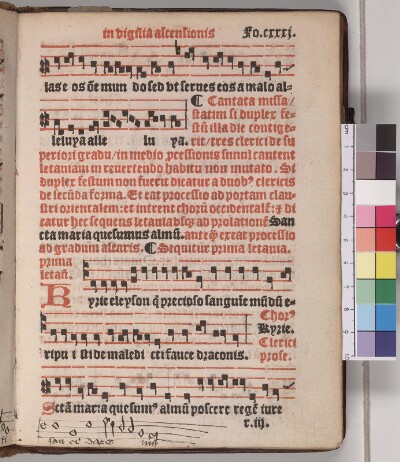 in vigilia ascensionis Fo.cxxxj.
las e os de mun do sed vt serues eos a malo al-
¶ Cantata missa/
statim si duplex fe-
stū illa die contige-
leluya alle lu ya. rit/tres clerici de su
periori gradu/in medio ꝓcessionis simul cantent
letaniam in reuertendo habitu non mutato. Si
duplex festum non fuerit dicatur a duob⁹ clericis
de secūda forma. Et eat processio ad portam clau-
stri orientalem: et intrent chorū occidentalē: ⁊ di
catur hec sequens letania vsq; ad prolationē San
cta maria quesumus almū. anteq̄ exeat processio
ad gradum altaris. ¶ Sequitur prima letania.
prima
letañ.
K yrie eleyson q̄ precioso sanguīe mūdū e-
Chor⁹
Kyrie.
ripu i sti de maledi cti fauce draconis. Clerici
prose.
Sctā maria quesum⁹ almū poscere regē iure
r.iij.